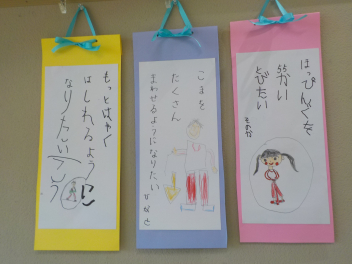 もっとはやく
はしれるように
なりたい
こまを
たくさん
まわせるようになりたい
ほっぴんぐを
55かい
とびたい